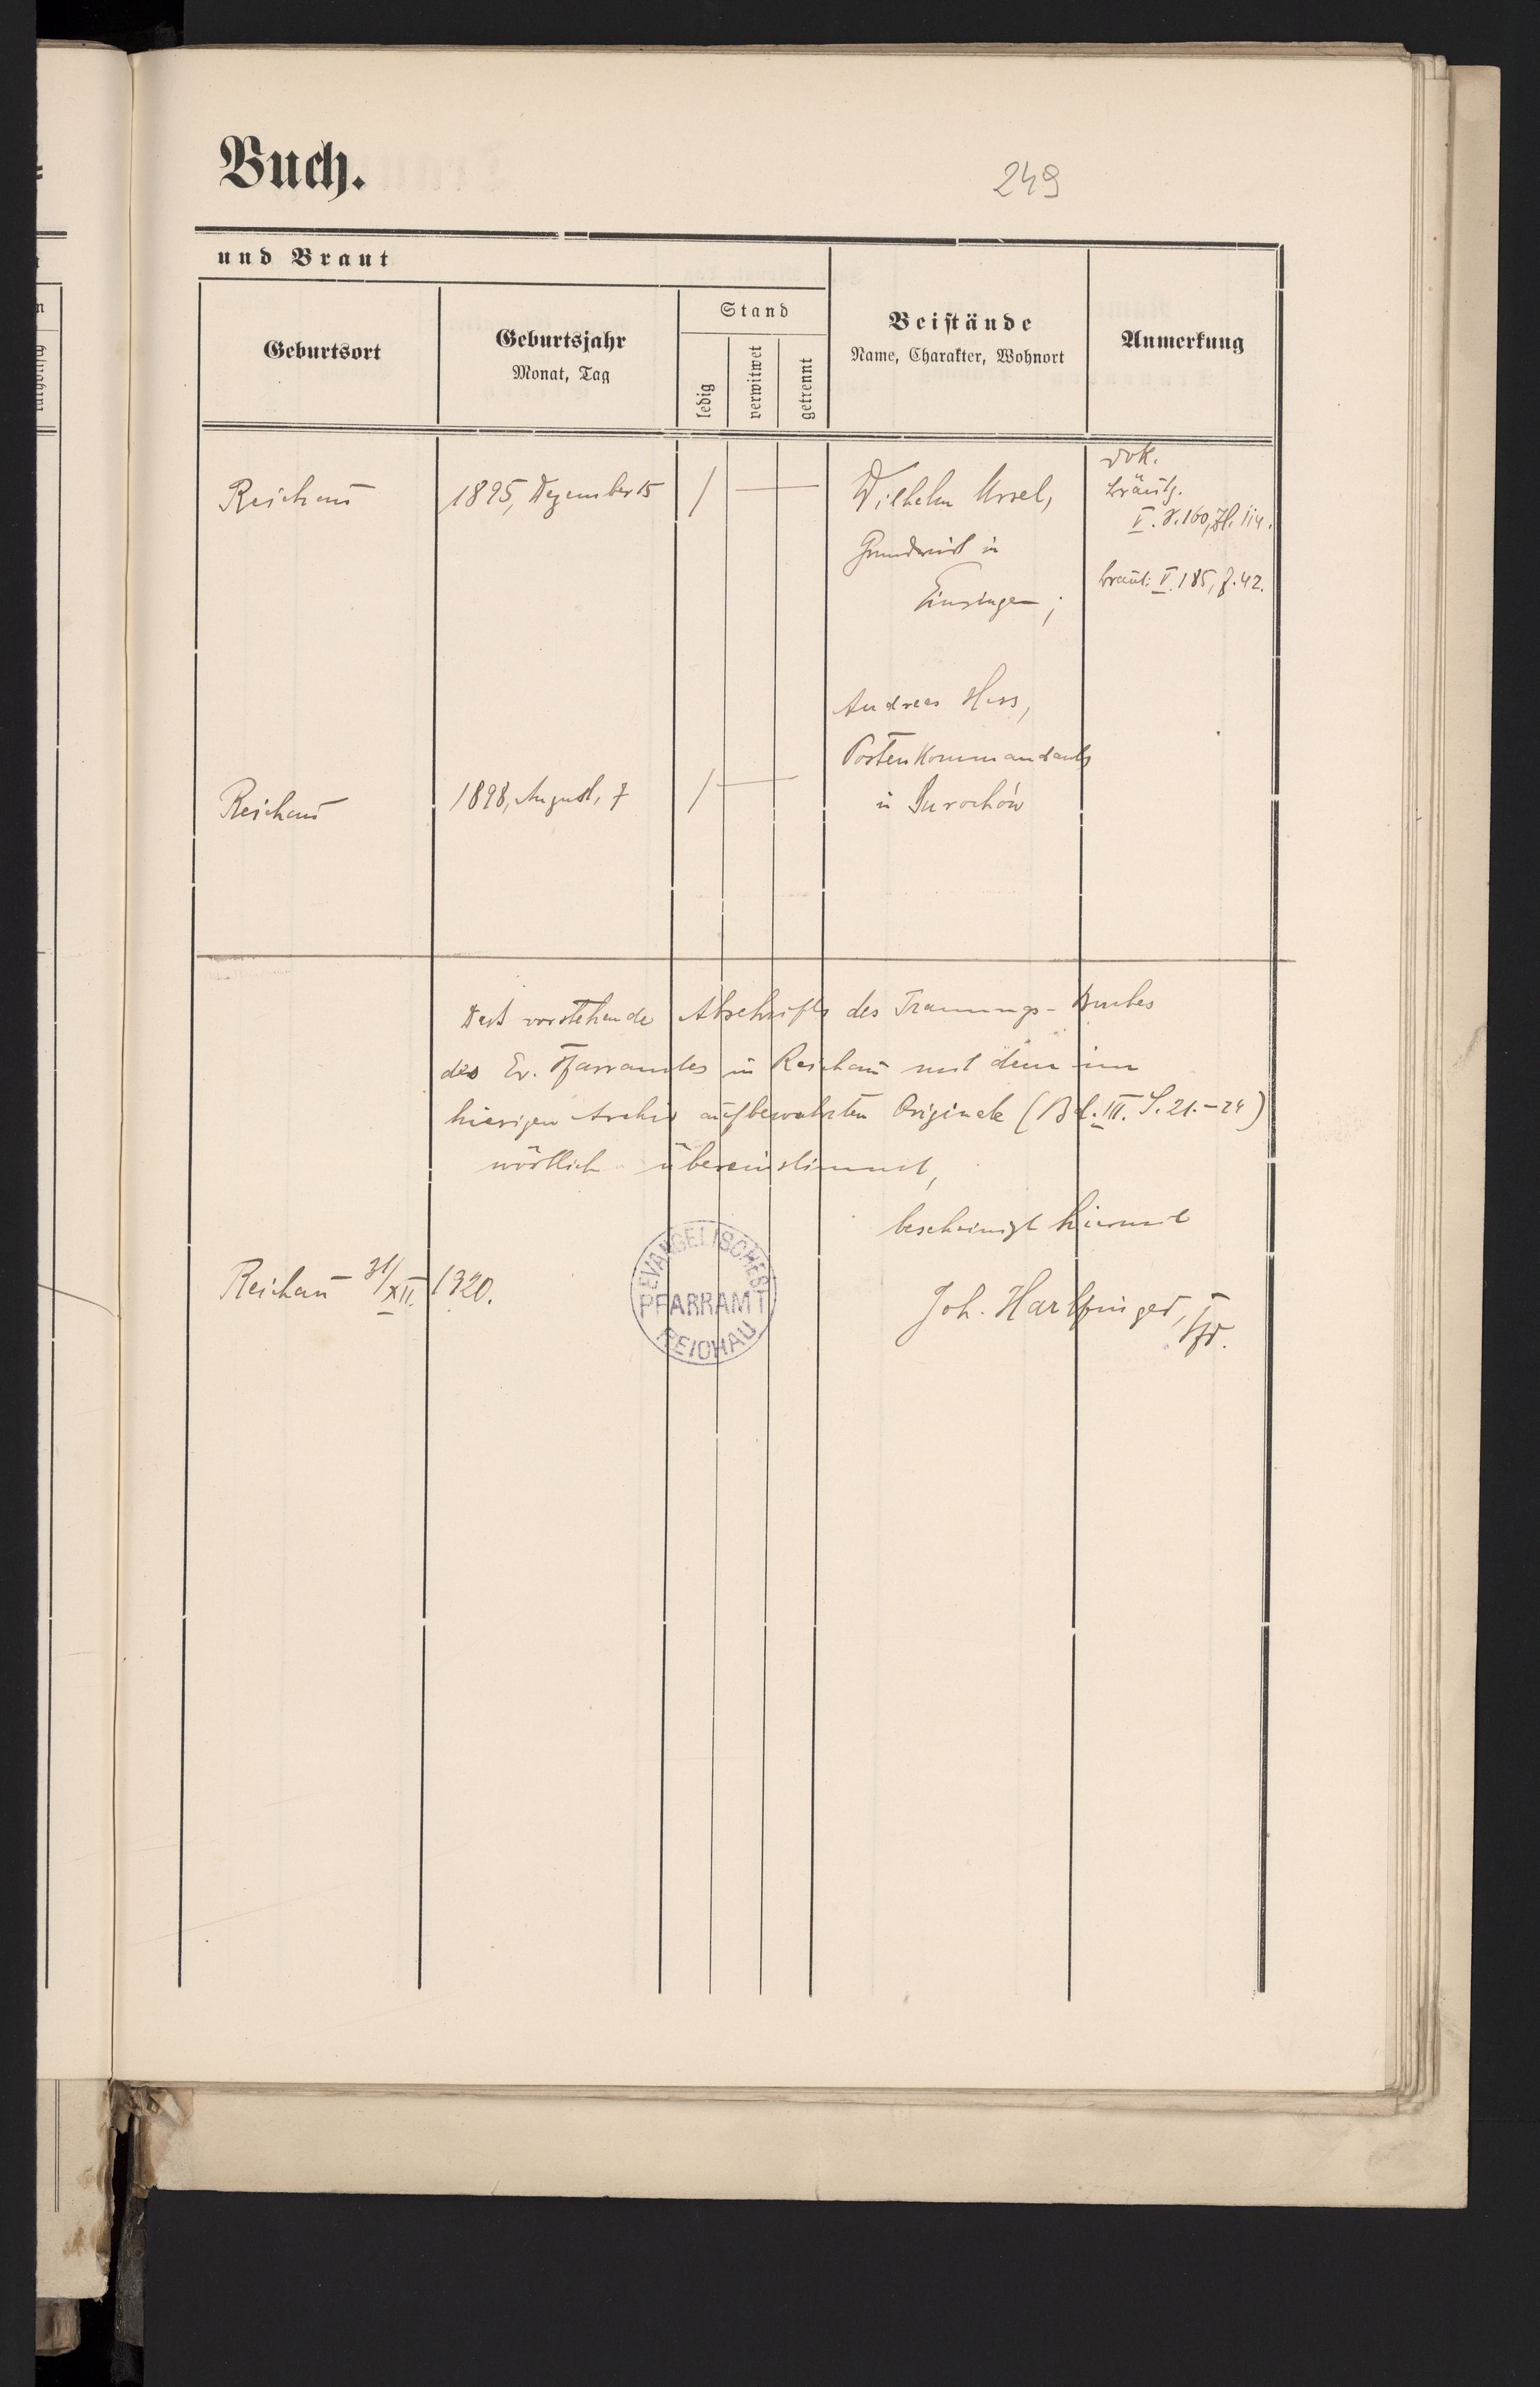 Buch.
249
und Braut
Geburtsort
Geburtsjahr
Monat, Tag
Stand
ledig
verwitwet
getrennt
Beistände
Name, Charakter, Wohnort
Anmerkung
Reichau
1895, Dezember 15
Wilhelm Ursel,
Grundwirt in
Einsingen;
Dok.
Bräutg.
V. S. 160, Zl. 114.
Braut: V. 185, Z. 42.
Andreas Hess,
Postenkommandant
in
Reichau
1898, August, 7
Dass vorstehende Abschrift des Trauungs-Buches
des Ev. Pfarramtes in Reichau mit dem im
hiesigen Archiv aufbewahrten Originale (Bd. III. S. 21.-24)
wörtlich übereinstimmt,
bescheinigt hiermit
Reichau 31/XII. 1920.
EVANGELISCHES
PFARRAMT
REICHAU
Joh. Hartfinger, Pfr.